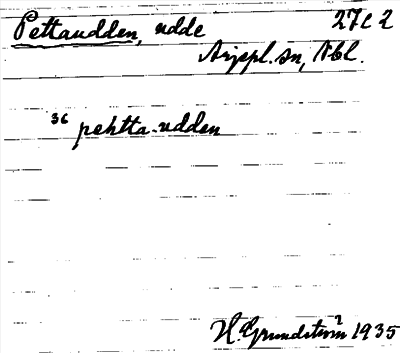 Pettaudden, udde 27c2
Arjepl. sn, Nbl.
36 pehtta-udden
H. Grundström 1935